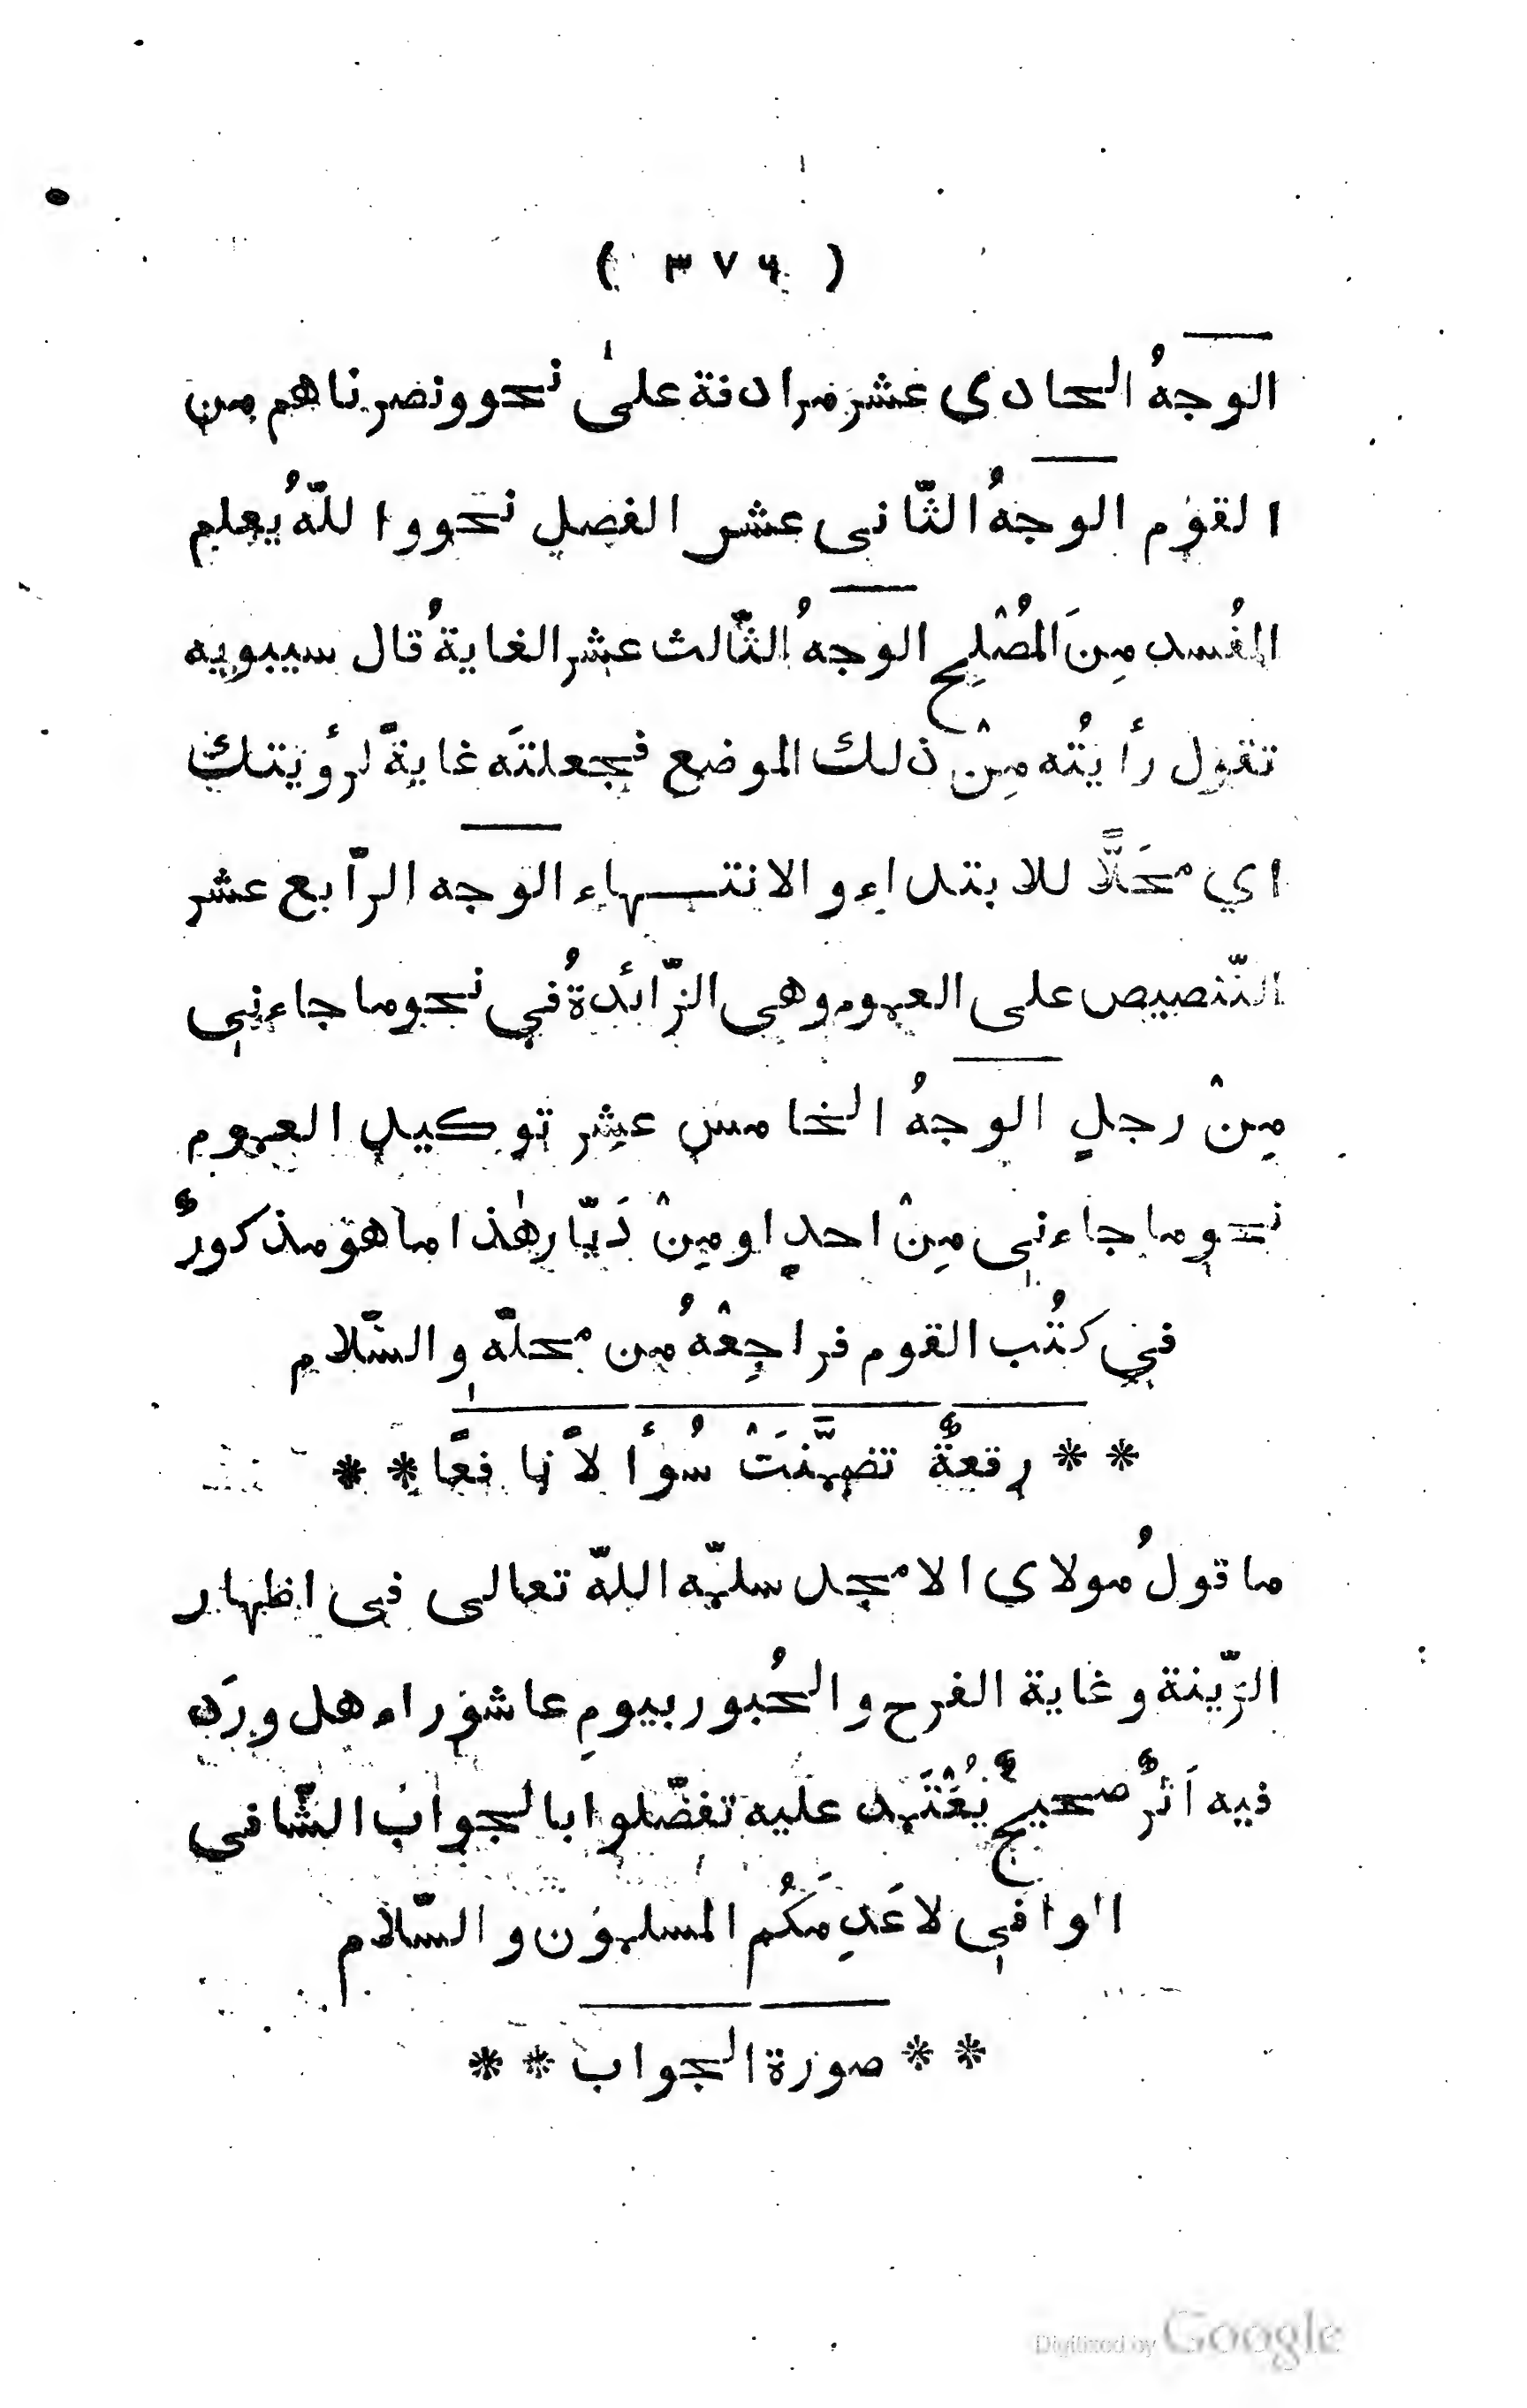 ( ٣٧٦ )
الوجهُ الحادى عشر مرادفة علىٰ نحو ونصرناهم من
القوم الوجهُ الثّانى عشر الفصل نحو واللّهُ يعلم
المُفسد مِنَ المُصْلِح الوجهُ الثّالث عشر الغايةُ قال سيبويه
تقول رأيتُه مِنْ ذلك الموضع فجعلتَه غايةً لرؤيتك
اي محَلًّا للابتداء والانتهاء الوجه الرّابع عشر
التّنصيص على العموم وهى الزّائدةُ في نحو ما جاءني
مِنْ رجلٍ الوجهُ الخامس عشر توكيد العموم
نحو ما جاءني مِنْ احدٍ او مِنْ دَيّار هٰذا ما هو مذكورٌ
في كتُب القوم فراجِعْهُ من محلّه والسّلام
** رقعةٌ تضمَّنَتْ سُؤالاً نافعًا **
ما قولُ مولاى الامجد سلّمه اللّه تعالى فى اظهار
الزّينة وغاية الفرح والحُبور بيومِ عاشوراء هل ورَد
فيه اَثرٌ صحيحٌ يُعْتَمد عليه تفضّلوا بالجواب الشّافى
الوافي لا عَدِمَكُم المسلمون والسّلام
** صورة الجواب **
Digitized by Google